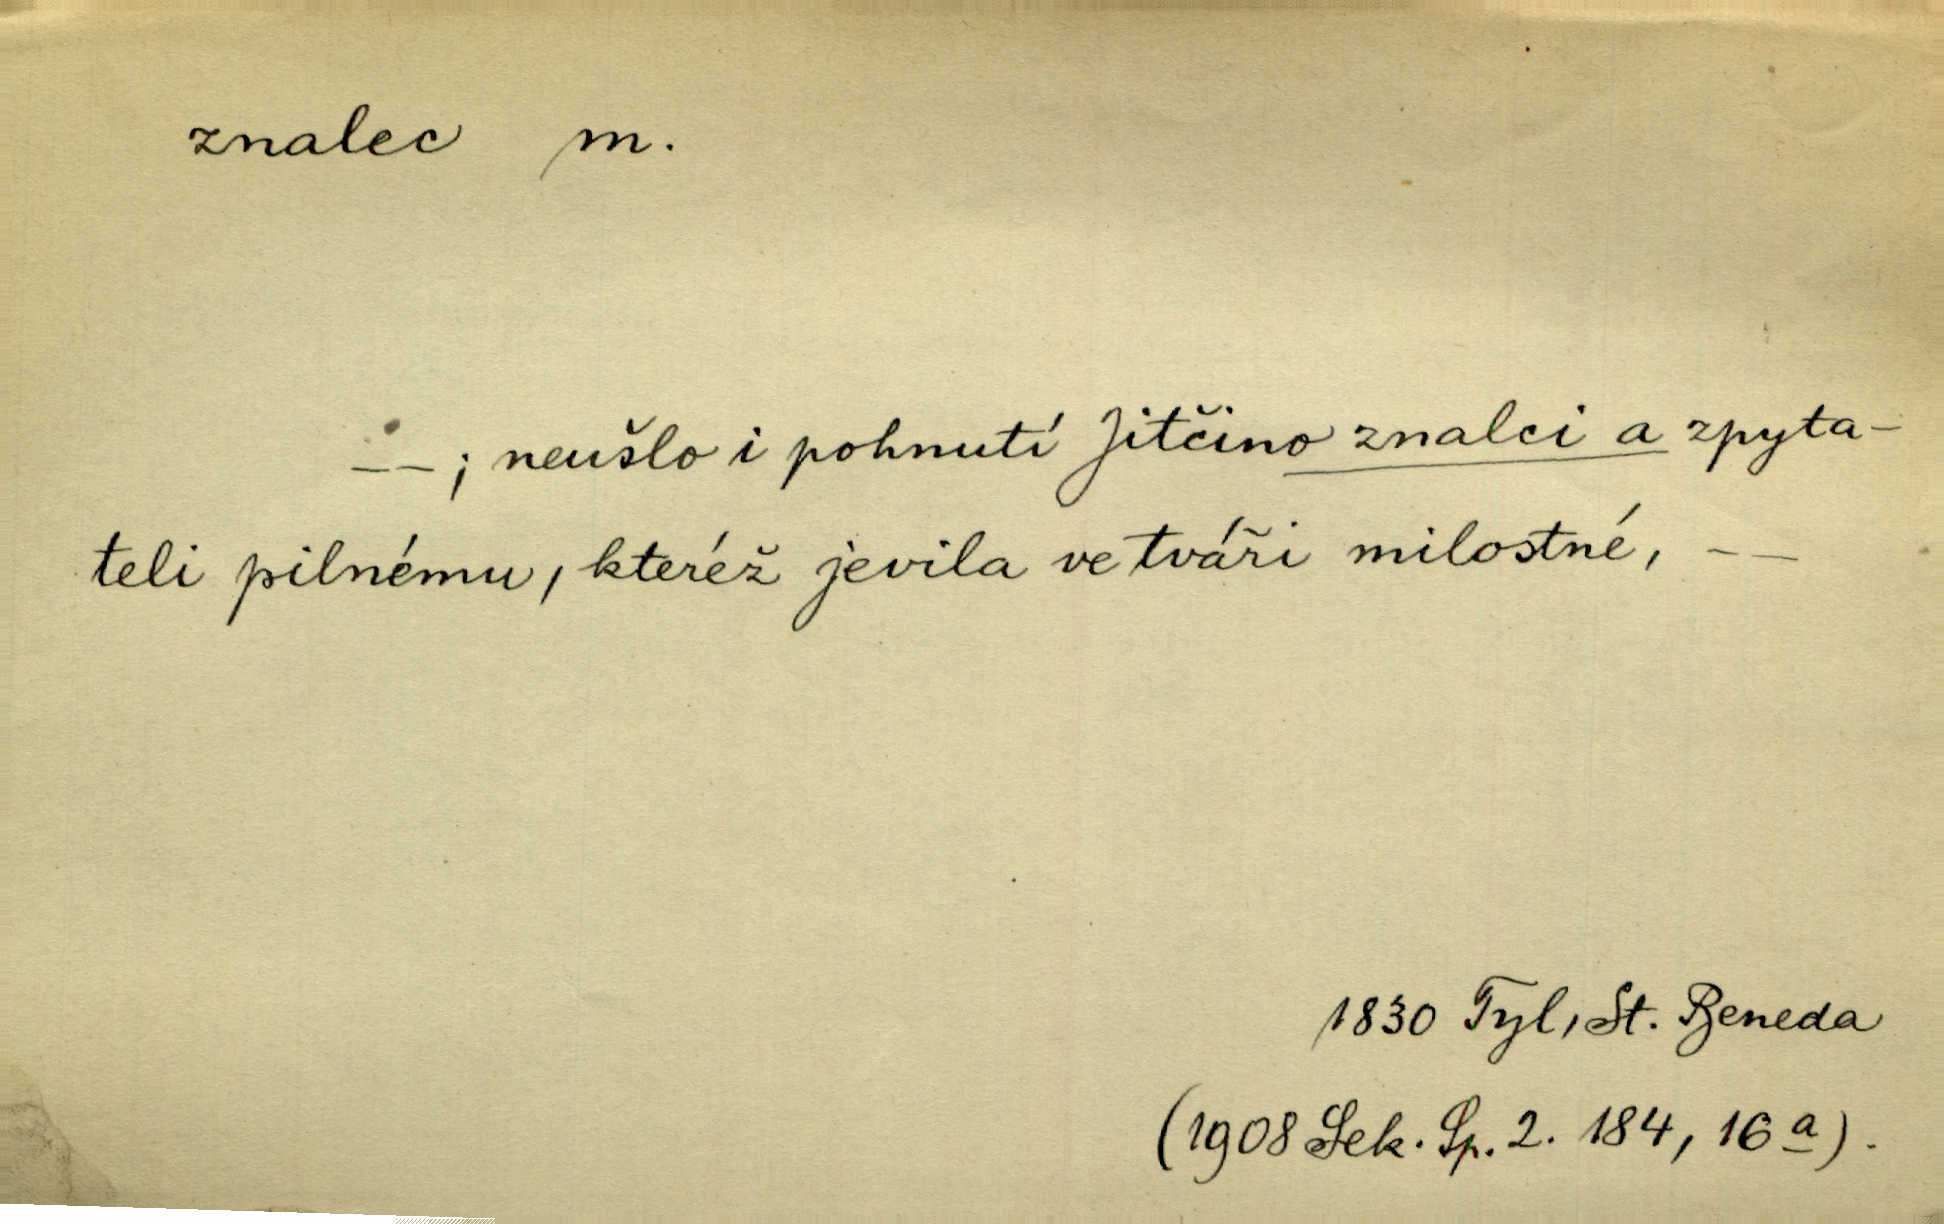 znalec m.
– – ; neušlo i pohnutí Jitčino znalci a zpyta-
teli pilnému, kteréž jevila ve tváři milostné, – –
1830 Tyl, St. Beneda
(1908 Sek. Sp. 2. 184, 16 a).